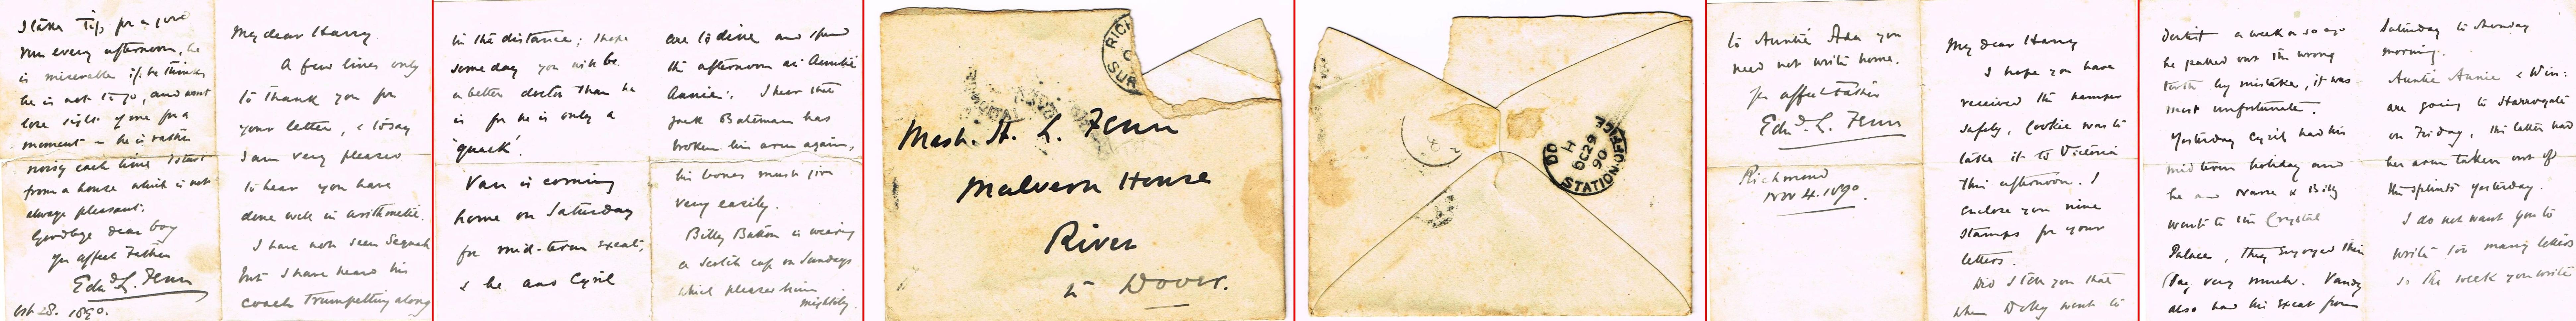 I take Tip for a good
run every afternoon, he
is miserable if he thinks
he is not to go, and wont
lose sight of me for a
moment - he is rather
noisy each time I start
from a house which is not
always pleasant.
Goodbye dear boy
Yr affect Father
Edwd. L. Fenn
Oct 28. 1890.
My dear Harry
A few lines only
to thank you for
your letter, & to say
I am very pleased
to hear you have
done well in arithmetic.
I have not seen Sequah
but I have heard his
coach trumpetting along
in the distance; I hope
some day you will be
a better doctor than he
is for he is only a
'quack'.
Van is coming
home on Saturday
for mid-term exeat,
& he and Cyril
are to dine and spend
the afternoon at Auntie
Annie's. I hear that
Jack Bateman has
broken his arm again,
his bones must give
very easily.
Billy Button is wearing
a Scotch cap on Sundays
which pleases him
mightily.
RICH
C
SUR
Mast. H. L. Fenn
Malvern House
River
nr Dover.
DO
H
OC 29
90
STATION OFFICE
to Auntie Ada you
need not write home.
Yr affect Father
Edwd. L. Fenn
Richmond
Nov 4. 1890.
My dear Harry
I hope you have
received the hamper
safely, Cookie was to
take it to Victoria
this afternoon. I
enclose you nine
stamps for your
letters.
Did I tell you that
when Dolly went to
dentist a week or so ago
he pulled out the wrong
tooth by mistake, it was
most unfortunate.
Yesterday Cyril had his
mid term holiday and
he and Nurse & Billy
went to the Crystal
Palace, they enjoyed their
day very much. Vandy
also had his exeat from
Saturday to Monday
morning.
Auntie Annie & Win:
are going to Harrogate
on Friday, the latter had
her arm taken out of
the splints yesterday.
I do not want you to
write too many letters
so the week you write